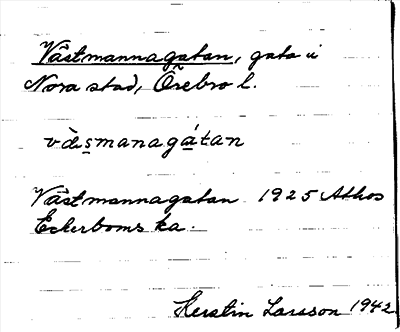 Västmannagatan, gata i
Nora stad, Örebro l.
vàsmanagátan
Västmannagatan 1925 Athos
Eckerboms ka.
Kerstin Larsson 1942